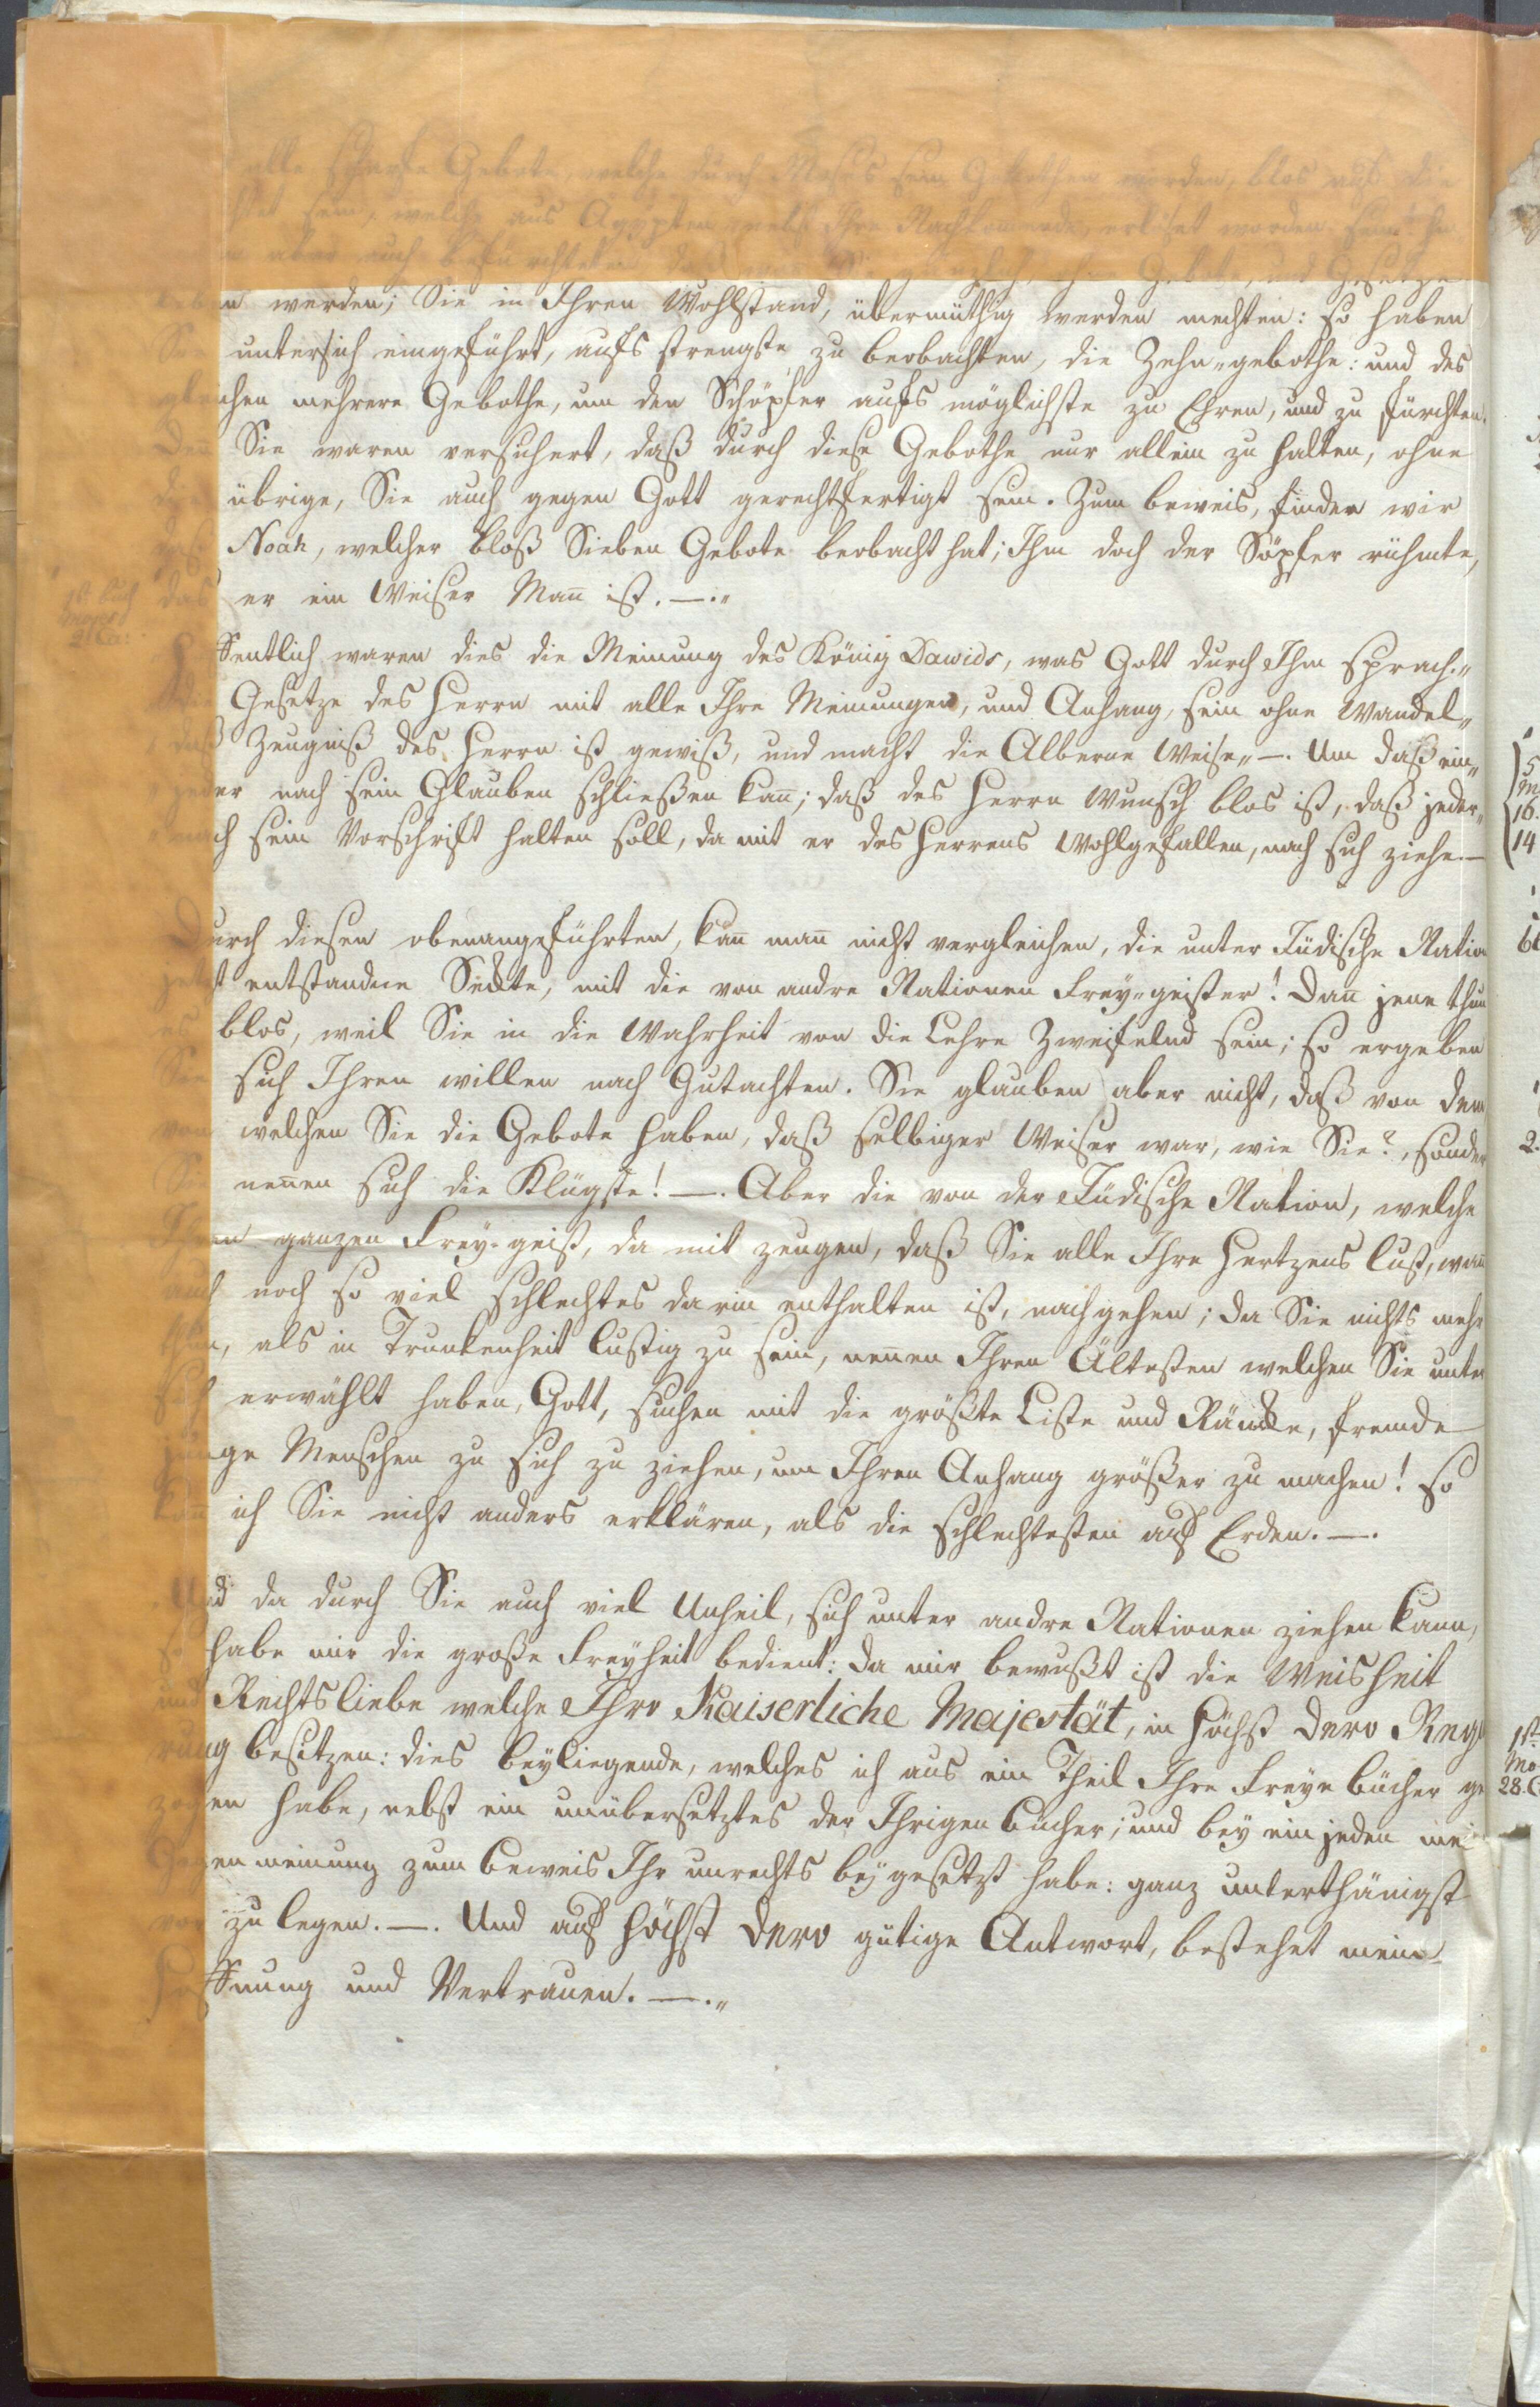 alle scharfe Gebote, welche durch Moses sein Gebothen worden, blos auf die
sein, welche aus Ägypten nebst Ihre Nachkomende, erlöset worden sein:
aber auch befürchteten Gebote, und Gesetze
leben werden; Sie in Ihren Wohlstand, übermüthig werden mechten: so haben
Sie untersich eingeführt, aufs strengste zu beobachten, die Zehn-gebothe: und des
gleichen mehrere Gebothe, um den Schöpfer aufs möglichste zu Ehren, und zu fürchten.
Den Sie waren versichert, daß durch diese Gebothe nur allein zu halten, ohne
die übrige, Sie auch gegen Gott gerechtfertigt sein. Zum beweis, finden wir
daß Noah, welcher bloß Sieben Gebote beobacht hat; Ihm doch der Söpfer rühmte,
das er ein Weiser Man̄ ist. —."
1t. Buch
Moses
Hoffentlich waren dies die Meinung des König Dawids, was Gott durch Ihm sprach:"
Die Gesetze des Herrn mit alle Ihre Meinungen, und Anhang, sein ohne Wandel"
" daß Zeugniß des Herrn ist gewiß, und macht die Alberne Weise" —. Um daß ein"
" jeder nach sein Glauben schließen kan̄; daß des Herrn Wunsch blos ist, daß jeder"
" nach sein Vorschrift halten soll, da mit er des Herrens Wohlgefallen, nach sich ziehe. —
Durch diesen obenangeführten, kan̄ man̄ nicht vergleichen, die unter Jüdische Natio
jetzt entstandne Seckte, mit die von andre Nationen Frey-geister! Dan̄ jene thun
es blos, weil Sie in die Wahrheit von die Lehre Zweifelnd sein; so ergeben
Sie sich Ihren willen nach Gutachten. Sie glauben aber nicht, daß von dem
von welchen Sie die Gebote haben, daß selbiger Weiser war, wie Sie?, sonder
Sie nen̄en sich die Klügste! —. Aber die von der Jüdische Nation, welche
Ihren ganzen Frey-geist, da mit zeugen, daß Sie alle Ihre Hertzens Lust, wan̄
auch noch so viel schlechtes darin enthalten ist, nachgehen; da Sie nichts mehr
thun, als in Trunkenheit lustig zu sein, nen̄en Ihren Ältesten welchen Sie unter
sich erwählt haben, Gott, suchen mit die größte Liste und Räncke, fremde
junge Menschen zu sich zu ziehen, um Ihren Anhang größer zu machen! so
kan̄ ich Sie nicht anders erklären, als die schlechtesten auf Erden. —.
Und da durch Sie auch viel Unheil, sich unter andre Nationen ziehen kann,
so habe mir die große Freyheit bedient: da mir bewußt ist die Weisheit
und Rechtsliebe welche Ihro Kaiserliche Majestät, in höchst Dero Regi
rung besitzen: dies beyliegende, welches ich aus ein Theil Ihre Freye bücher ge
zogen habe, nebst ein unübersetztes der Ihrigen bücher; und bey ein jeden mei
Gegen meinung zum beweis Ihr unrechts bey gesetzt habe: ganz unterthänigst
vor zu legen. —. Und auf höchst Dero gütige Antwort, bestehet meine
Hoffnung und Vertrauen. —."
5
M
16.
14
2.
1t.
Mo
28. C